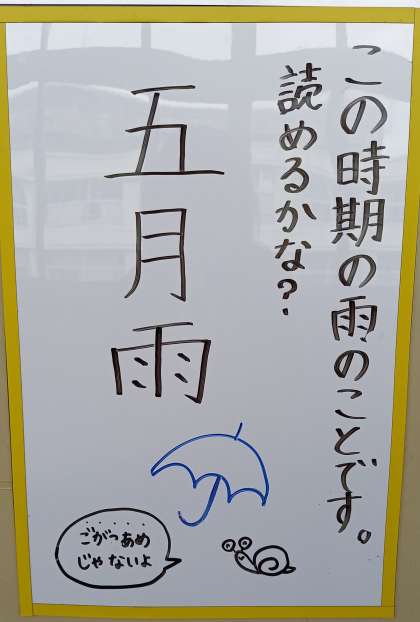 この時期の雨のことです。
読めるかな?
五月雨
ごがつあめ
じゃないよ